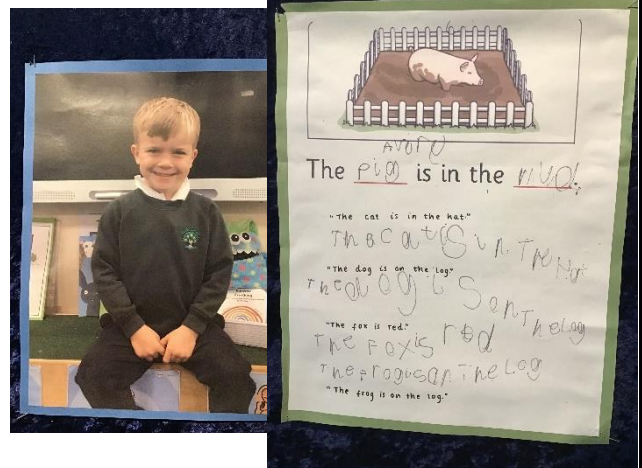 The pig is in the mud.
"The cat is in the hat."
The cat iS in The Hat
"The dog is on the log."
The dog iS on The Log
"The fox is red."
The Fox is red
The frog is on The Log
"The frog is on the log."